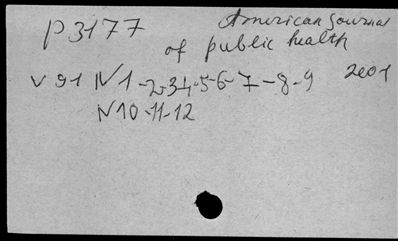 P3177 American Journal
of public health
v 91 N1-2-3-4-5-6-7-8-9 2001
N10-11-12